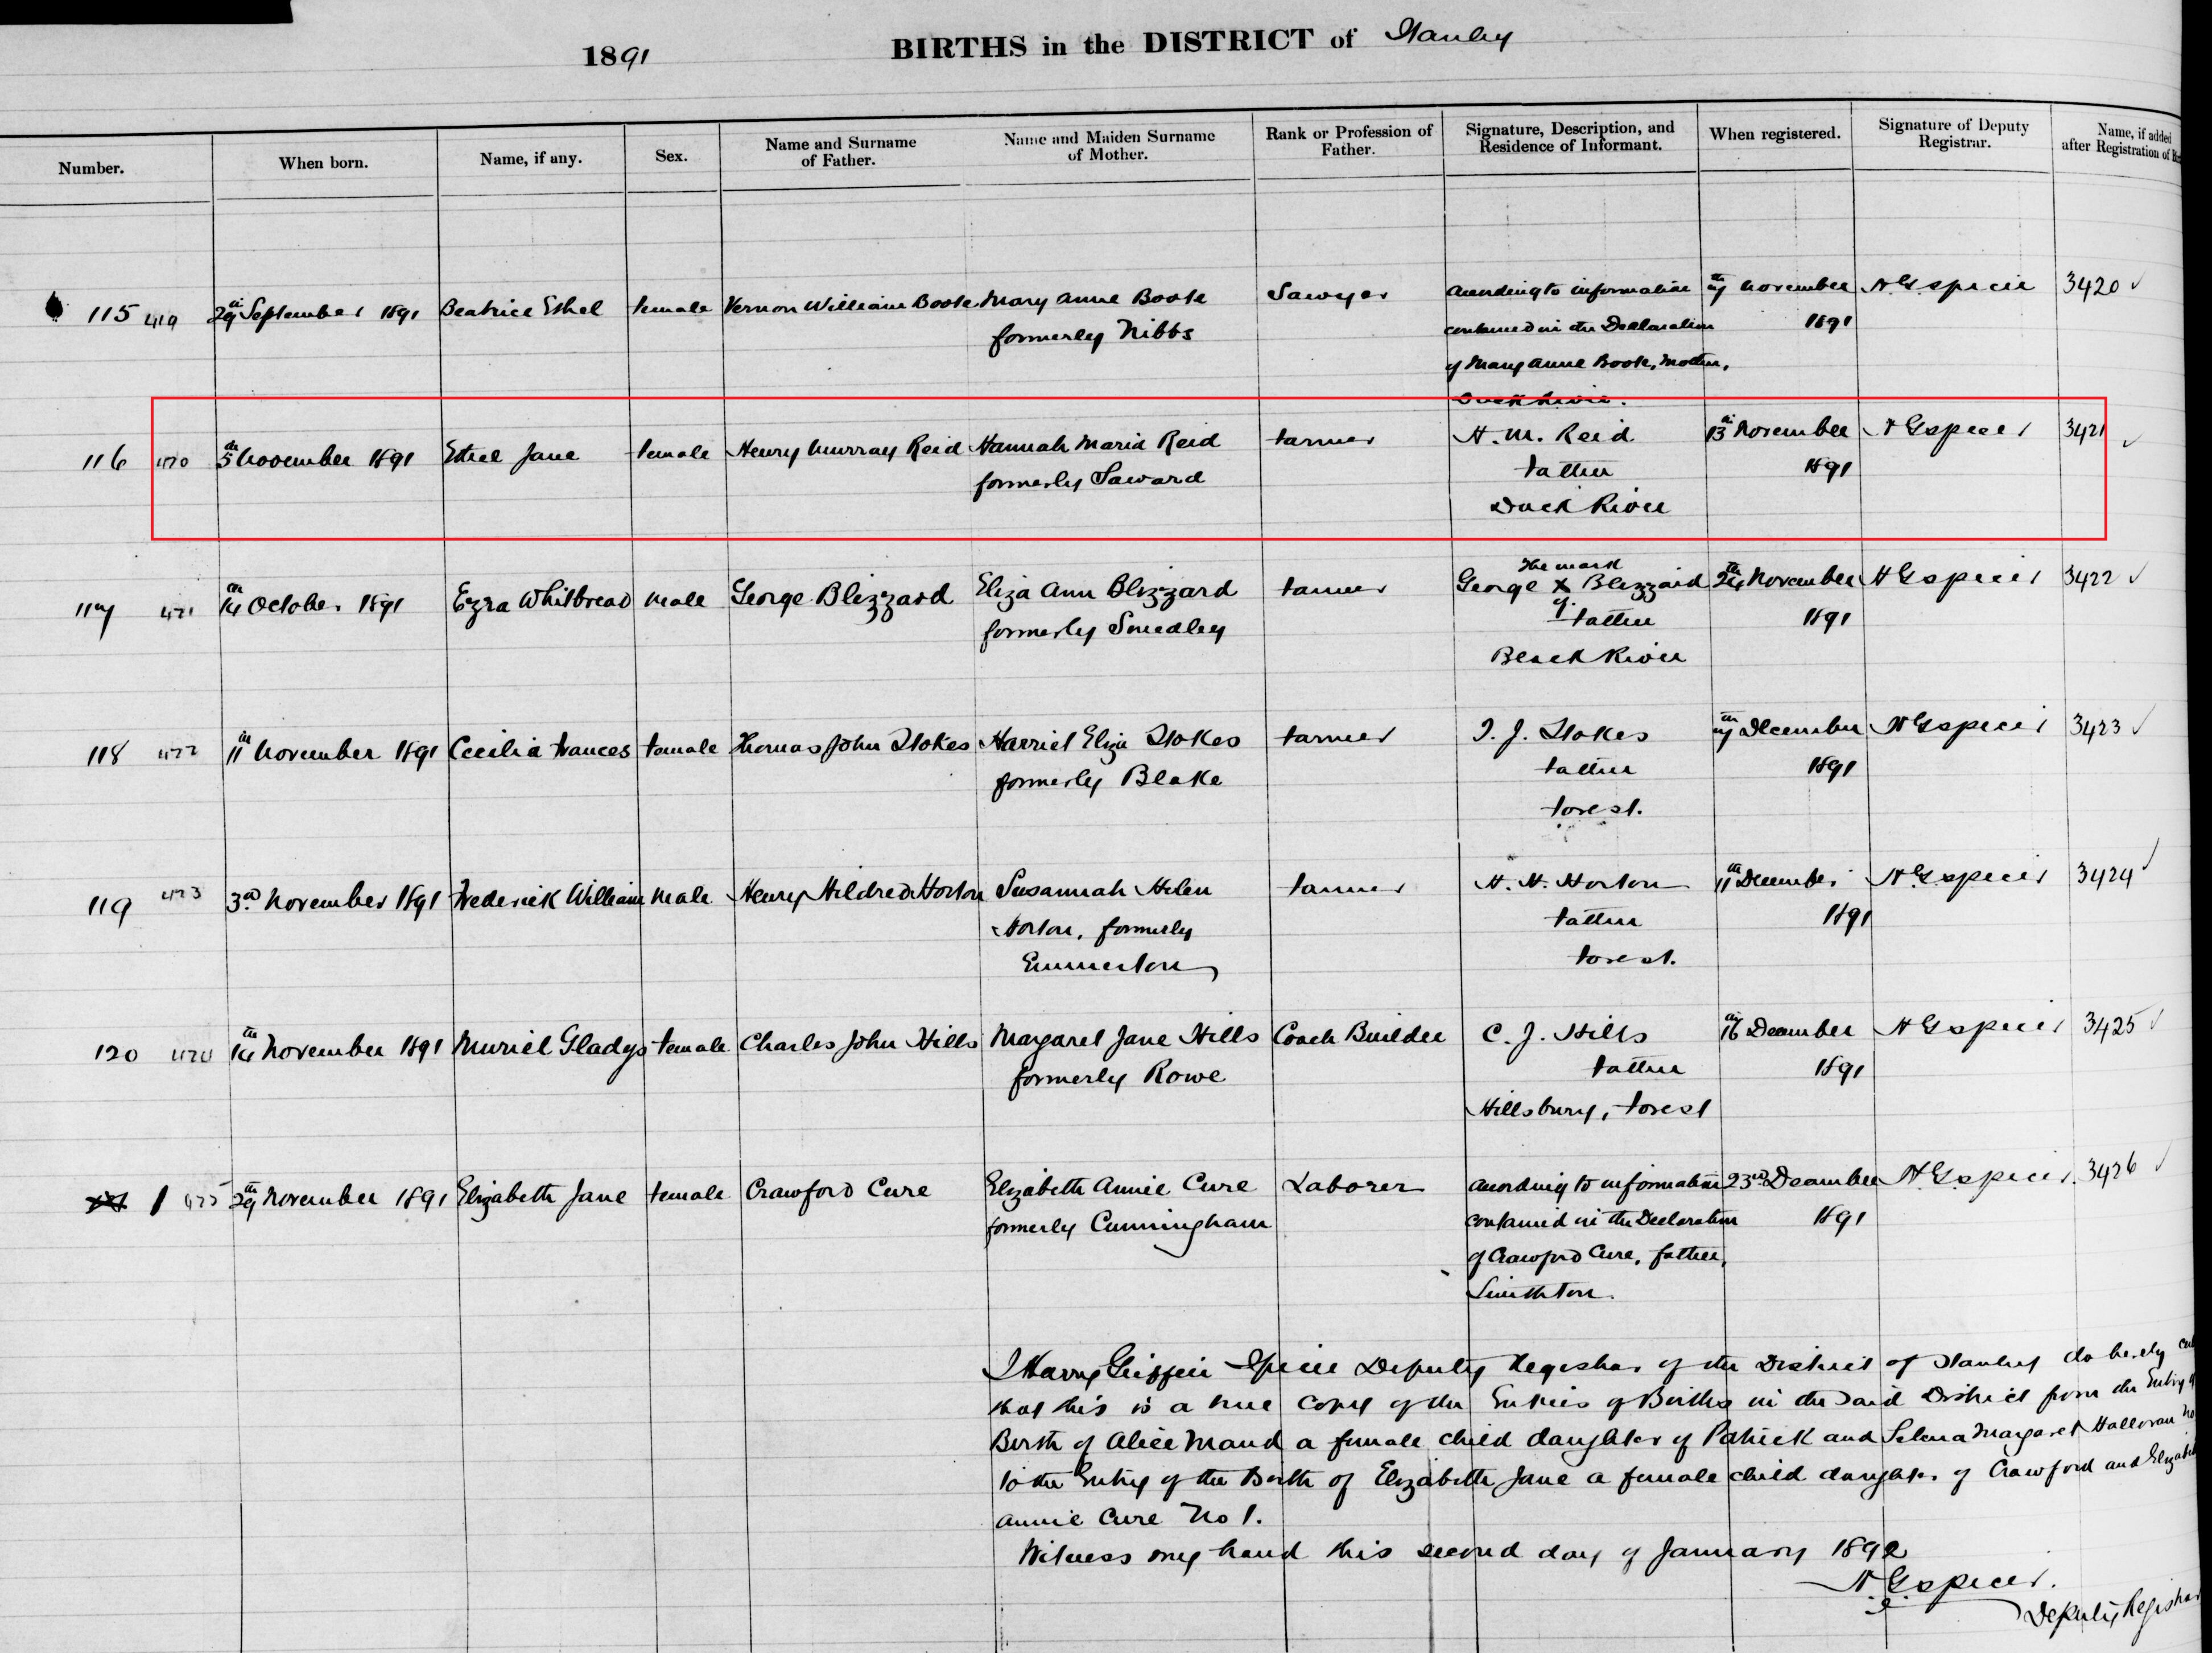 1891 BIRTHS in the DISTRICT of Stanley
Number. When born. Name, if any. Sex. Name and Surname of Father. Name and Maiden Surname of Mother. Rank or Profession of Father. Signature, Description, and Residence of Informant. When registered. Signature of Deputy Registrar. Name, if added after Registration of
115 419 29th September 1891 Beatrice Ethel female Vernon William Boote Mary Anne Boote Sawyer according to information 7th November H G Spicer 3420 ✓
formerly Nibbs contained in the Declaration 1891
of Mary Anne Boote, Mother,
Duck River.
116 420 5th November 1891 Ethel Jane female Henry Murray Reid Hannah Maria Reid farmer H. M. Reid 13th November H G Spicer 3421 ✓
formerly Saward father 1891
Duck River
The mark
117 421 14th October 1891 Ezra Whitbread male George Blizzard Eliza Ann Blizzard farmer George X Blizzard 24th November H G Spicer 3422 ✓
formerly Smedley of father 1891
Black River
118 422 11th November 1891 Cecilia Frances female Thomas John Stokes Harriet Eliza Stokes farmer T. J. Stokes 7th December H G Spicer 3423 ✓
formerly Blake father 1891
Forest.
119 423 3rd November 1891 Frederick William male Henry Hildred Horton Susannah Helen farmer H. H. Horton 11th December H G Spicer 3424 ✓
Horton, formerly father 1891
Emmerton Forest.
120 424 14th November 1891 Muriel Gladys female Charles John Hills Margaret Jane Hills Coach Builder C. J. Hills 16th December H G Spicer 3425 ✓
formerly Rowe father 1891
Hillsbury, Forest
1 425 29th November 1891 Elizabeth Jane female Crawford Cure Elizabeth Annie Cure Laborer according to information 23rd December H G Spicer. 3426 ✓
formerly Cunningham contained in the Declaration 1891
of Crawford Cure, father,
Smithton.
I Harry Griffin Spicer Deputy Registrar of the District of Stanley do hereby
that this is a true copy of the Entries of Births in the said District from the Entry of
Birth of Alice Maud a female child daughter of Patrick and Selena Margaret Halloran No
to the Entry of the Birth of Elizabeth Jane a female child daughter of Crawford and Elizabeth
Annie Cure No 1.
Witness my hand this second day of January 1892
H G Spicer.
Deputy Registrar